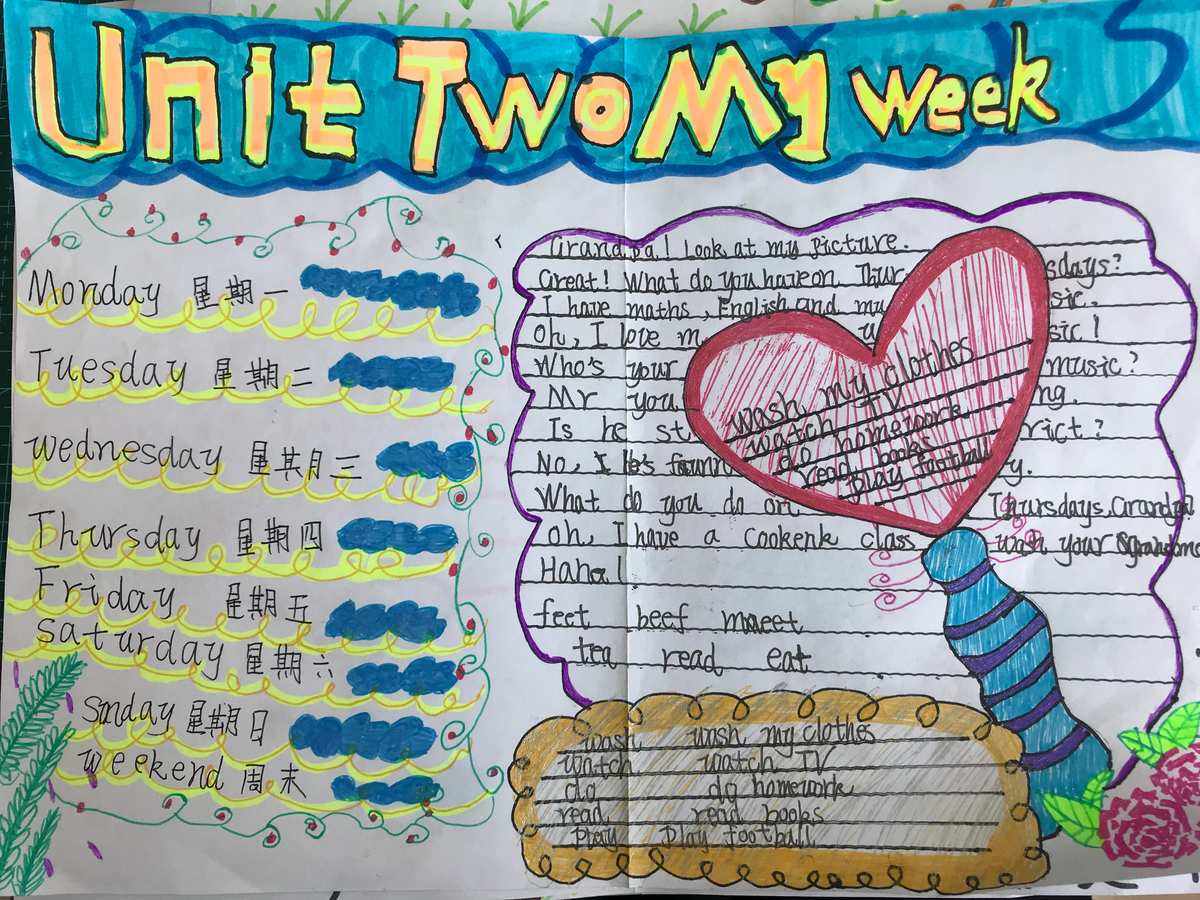 Unit Two My week
Monday 星期一
Tuesday 星期二
wednesday 星期三
Thursday 星期四
Friday 星期五
saturday 星期六
Sunday 星期日
weekend 周末
Grandpa! Look at my picture.
Great! What do you have on Thursdays?
I have maths, English and music.
Oh, I love music!
Who's your music?
Mr you ng.
Is he strict?
No, he's
What do you do on Thursdays, Grandpa
Oh, I have a Cookenk class wash your
Haha!
feet beef meet
tea read eat
wash my clothes
watch TV
do homework
read books
play football
wash wash my clothes
watch watch TV
do do homework
read read books
play play football